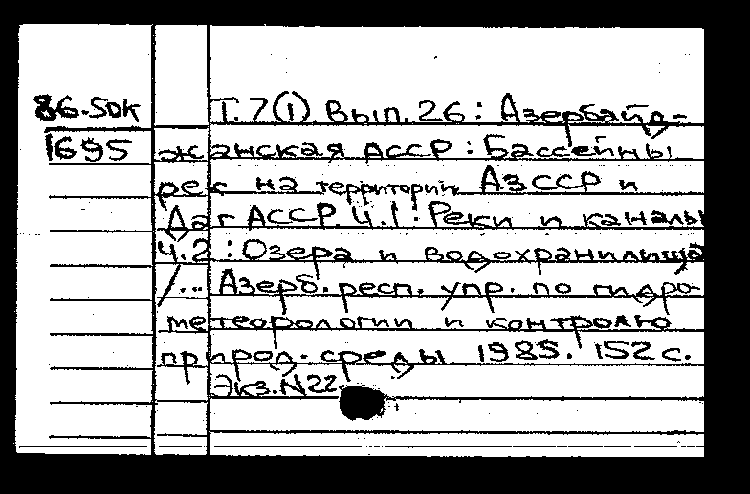 86-5DK Т.7(1) Вып.26: Азербайд-
1695 жанская АССР: Бассейны
рек на территории АзССР и
ДагАССР. Ч.1: Реки и каналы
Ч.2: Озера и водохранилища
/... Азерб. респ. упр. по гидро-
метеорологии и контролю
природ. среды 1985. 152 с.
Экз.N22